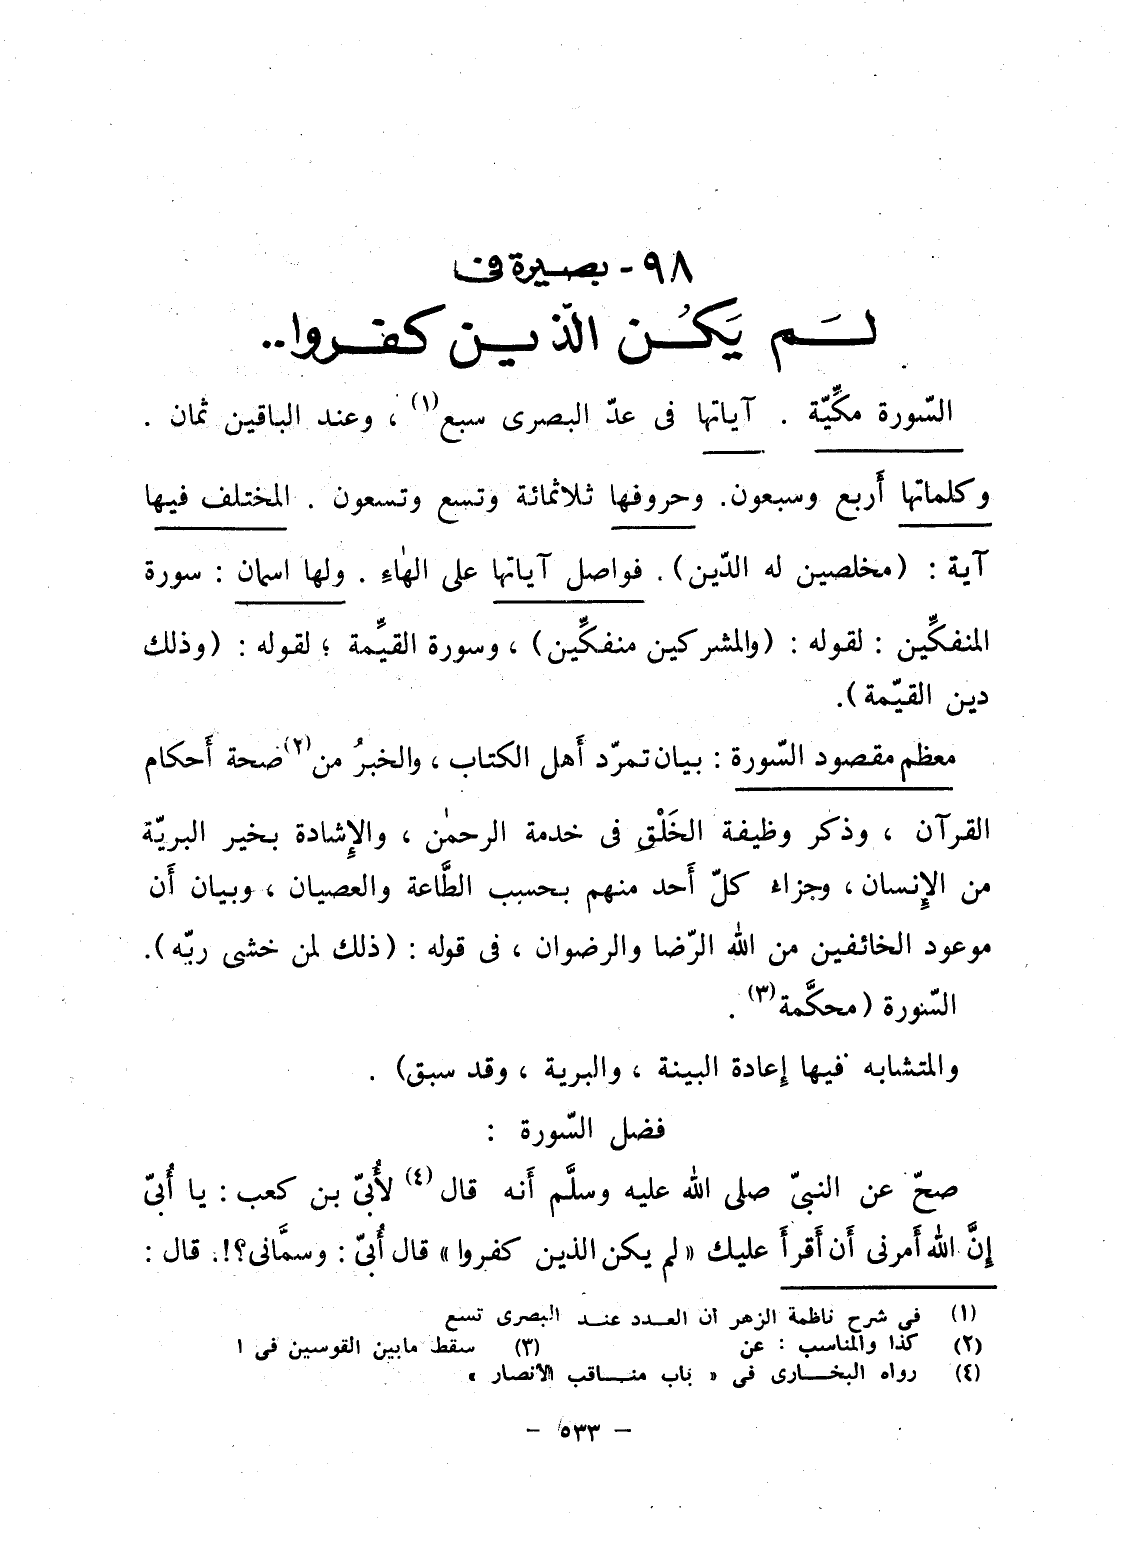 ٩٨ - بصيرة فى
لـم يَكُـن الّذيـن كفـروا..
السّورة مكِّيّة . آياتها فى عدّ البصرى سبع(١) ، وعند الباقين ثمان .
وكلماتها أَربع وسبعون. وحروفها ثلاثمائة وتسع وتسعون . المختلف فيها
آية : (مخلصين له الدّين). فواصل آياتها على الهاءِ . ولها اسمان : سورة
المنفكِّين : لقوله : (والمشركين منفكِّين) ، وسورة القيِّمة ؛ لقوله : (وذلك
دين القيّمة).
معظم مقصود السّورة : بيان تمرّد أَهل الكتاب ، والخبرُ من(٢) صحة أَحكام
القرآن ، وذكر وظيفة الخَلْقِ فى خدمة الرحمٰن ، والإِشادة بخير البريّة
من الإِنسان ، وجزاء كلّ أَحد منهم بحسب الطَّاعة والعصيان ، وبيان أَن
موعود الخائفين من الله الرّضا والرضوان ، فى قوله : (ذلك لمن خشى ربّه).
السّورة (محكَّمة(٣) .
والمتشابه فيها إِعادة البينة ، والبرية ، وقد سبق) .
فضل السّورة :
صحّ عن النبىّ صلى الله عليه وسلَّم أَنه قال(٤) لأُبىّ بن كعب : يا أُبىّ
إِنَّ الله أَمرنى أَن أَقرأَ عليك « لم يكن الذين كفروا » قال أُبىّ : وسمَّانى؟!. قال :
(١) فى شرح ناظمة الزهر أن العـدد عنـد البصرى تسع
(٢) كذا والمناسب : عن (٣) سقط مابين القوسين فى ا
(٤) رواه البخـــارى فى « باب منـــاقب الأنصار »
— ٥٣٣ —